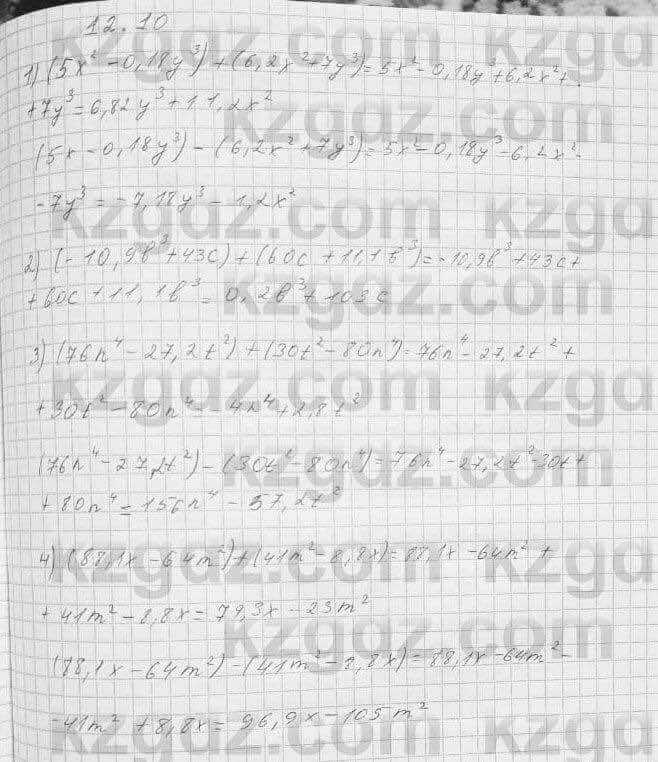 12.10
1) (5x² - 0,18y³) + (6,2x² + 7y³) = 5x² - 0,18y³ + 6,2x² +
+ 7y³ = 6,82y³ + 11,2x²
(5x - 0,18y³) - (6,2x² + 7y³) = 5x² - 0,18y³ - 6,2x² -
- 7y³ = -7,18y³ - 1,2x²
2) (-10,9b³ + 43c) + (60c + 11,1b³) = -10,9b³ + 43c +
+ 60c + 11,1b³ = 0,2b³ + 103c
3) (76n⁴ - 27,2t²) + (30t² - 80n⁴) = 76n⁴ - 27,2t² +
+ 30t² - 80n⁴ = -4n⁴ + 2,8t²
(76n⁴ - 27,2t²) - (30t² - 80n⁴) = 76n⁴ - 27,2t² - 30t +
+ 80n⁴ = 156n⁴ - 57,2t²
4) (88,1x - 64m²) + (41m² - 8,8x) = 88,1x - 64m² +
+ 41m² - 8,8x = 79,3x - 23m²
(88,1x - 64m²) - (41m² - 8,8x) = 88,1x - 64m² -
- 41m² + 8,8x = 96,9x - 105m²
kzgdz.com